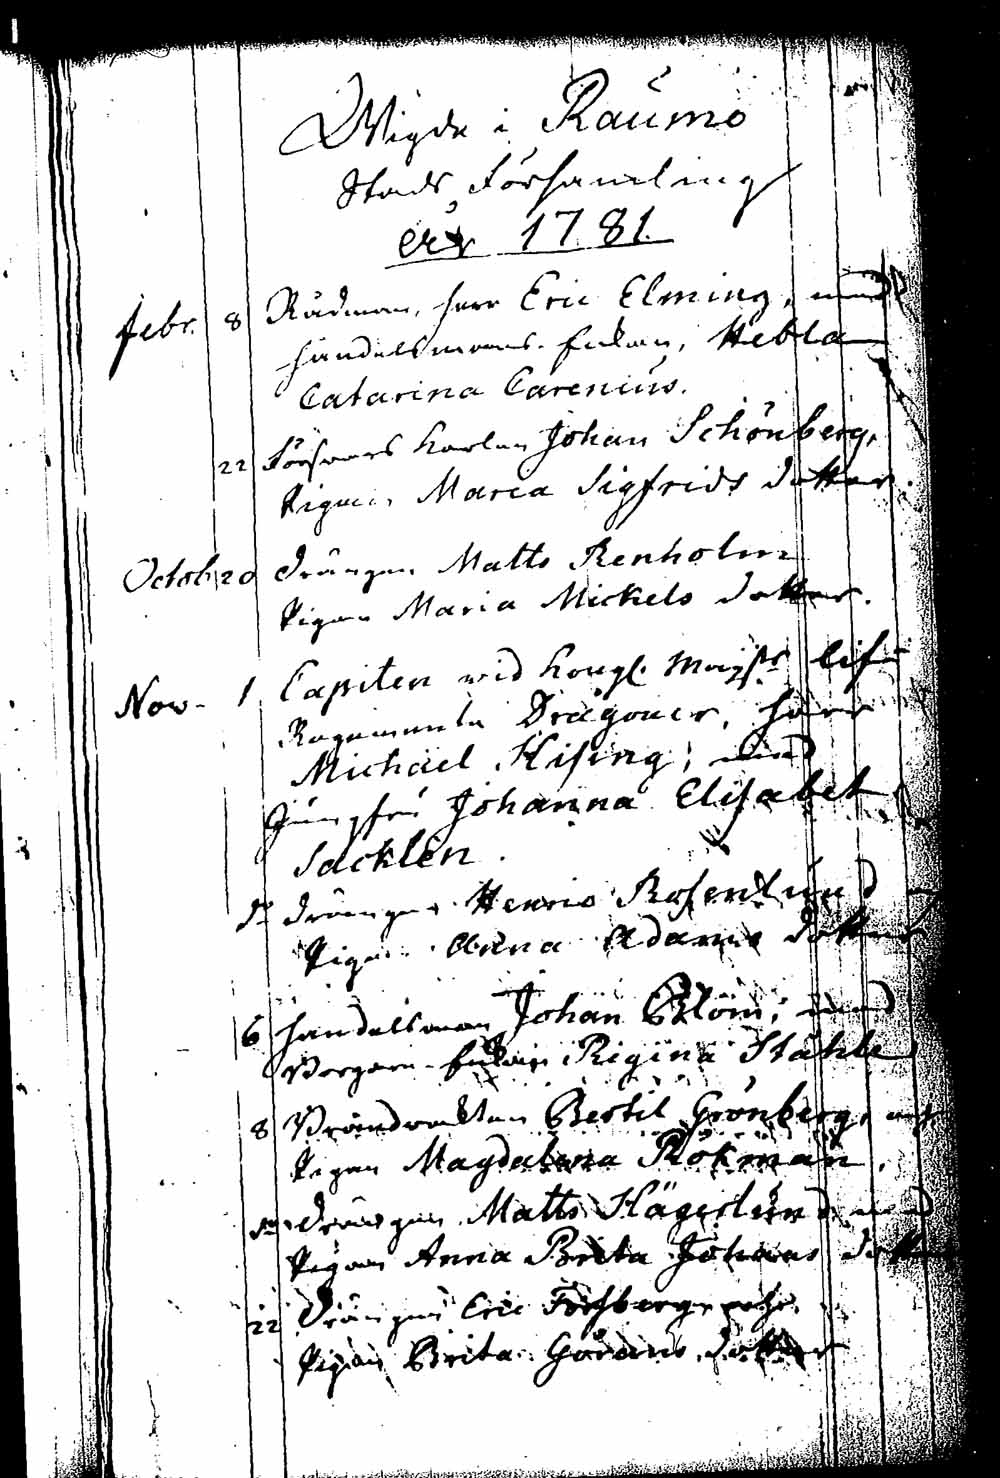 Wigde i Raumo
Stads Församling
år 1781.
Febr. 8 Rådman, herr Eric Elming, med
handelsmans-Enkan, Hebla
Catarina Carenius.
22 Försvars Karlen Johan Schönberg,
Pigan Maria Sigfrids dotter.
Octob. 20 Drängen Matts Renholm
Pigan Maria Mickels dotter.
Nov. 1 Capiten vid Kongl. Maysts lif-
Regemente Dragoner, herr
Michaël Hising, med
Jungfru Johanna Elisabet
Sacklén.
do Drängen Henric Rosenlund
Pigan Anna Adams dotter
6 handelsman Johan Blöm, med
Borgare-Enkan Rigina Ståhle
8 Bertil Grönberg, och
Pigan Magdalena Rökman.
do Drängen Matts Hägerlund med
Pigan Anna Brita Johans dotter
22 Drängen Eric Forsberg, och
Pigan Brita Görans dotter